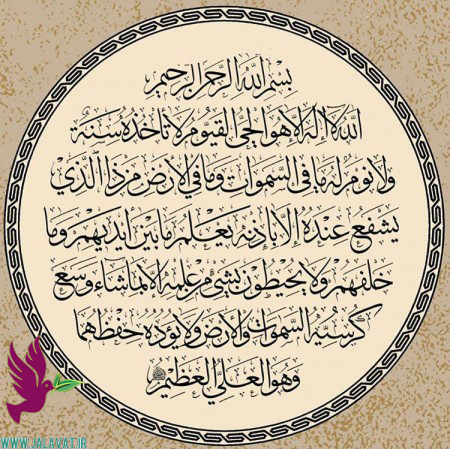 بسم الله الرحمن الرحيم
الله لا إله إلا هو الحي القيوم لا تأخذه سنة
ولا نوم له ما في السموات وما في الأرض من ذا الذي
يشفع عنده إلا بإذنه يعلم ما بين أيديهم وما
خلفهم ولا يحيطون بشيء من علمه إلا بما شاء وسع
كرسيه السموات والأرض ولا يؤده حفظهما
وهو العلي العظيم
WWW.JALAVAT.IR